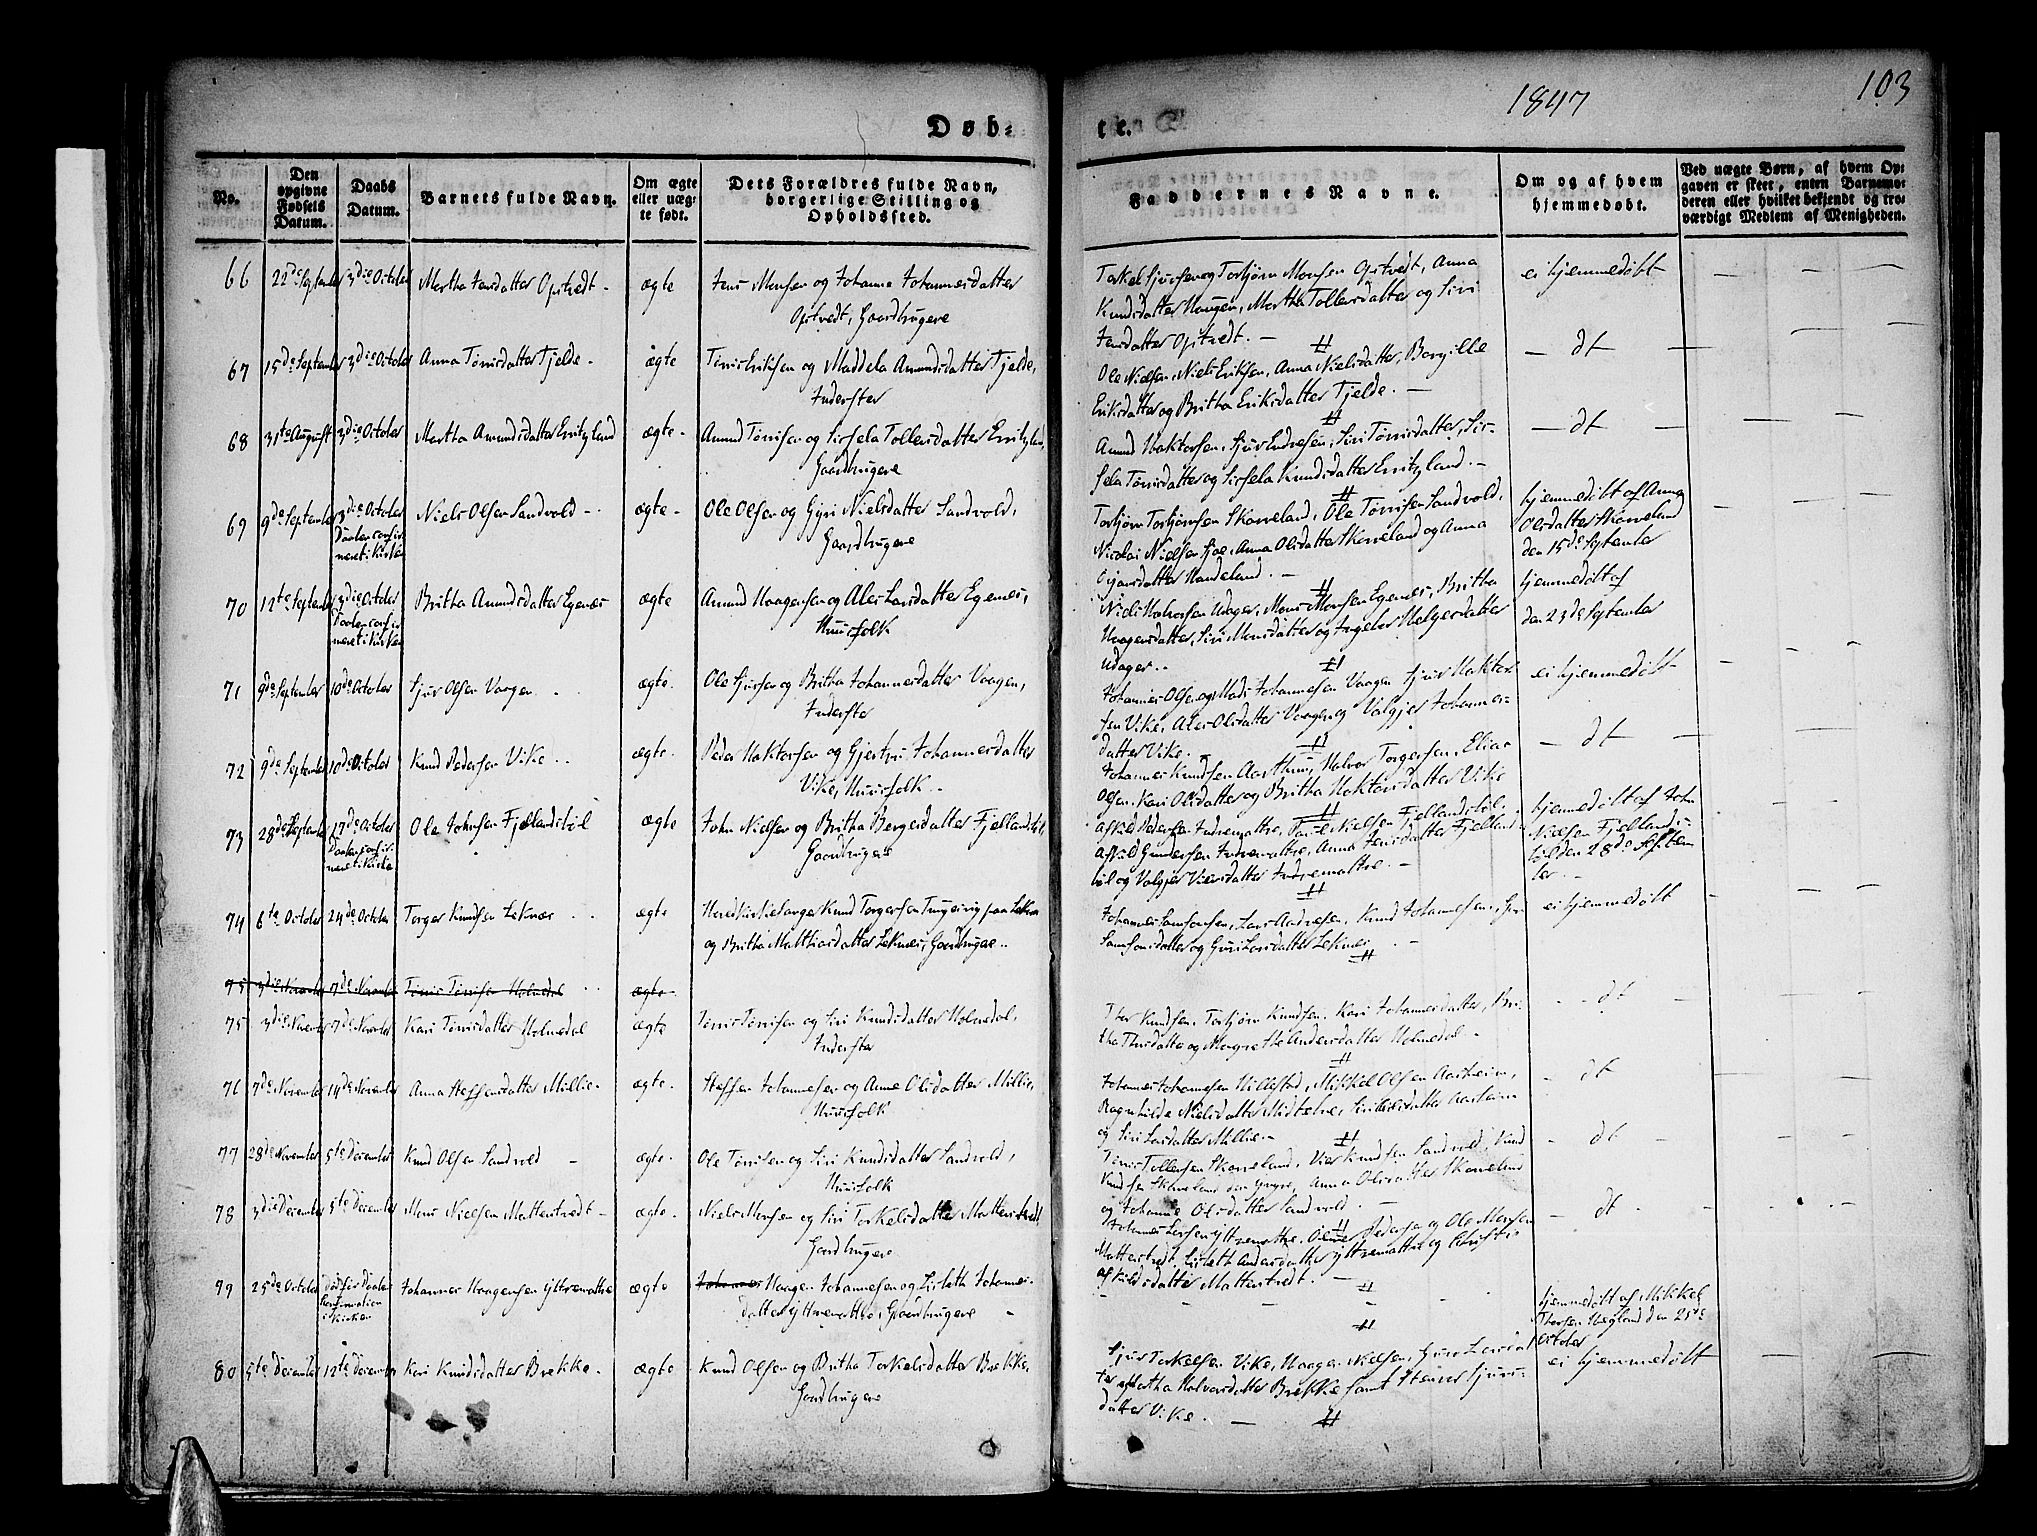 1847
103
Døb-
te.
No.
Den
opgivne
Fødsels
Datum.
Daabs
Datum.
Barnets fulde Navn.
Om ægte
eller uæg-
te født.
Dets Forældres fulde Navn,
borgerlige Stilling og
Opholdssted.
Faddernes Navne.
Om og af hvem
hjemmedøbt.
Ved uægte Børn, af hvem Op-
gaven er skeet, enten Barnemo-
deren eller hvilket bekjendt og tro-
værdigt Medlem af Menigheden.
66 22de September 3die October Martha Jensdatter Opstvedt - ægte Jens Monsen og Johanne Johannesdatter
Opstvedt, Gaardbrugere
Torkel Sjursen og Torbjørn Monsen Opstvedt, Anna
Knudsdatter Haugen, Martha Tollersdatter og Siri
Jensdatter Opstvedt. -
ei hjemmedøbt
67 15de September 3die October Anna Tørrisdatter Tjelde - ægte Tørris Eriksen og Maddela Amundsdatter Tjelde,
Inderster
Ole Nielsen, Niels Eriksen, Anna Nielsdatter, Borgille
Eriksdatter og Britha Eriksdatter Tjelde. -
- dt -
68 31te August 3die October Martha Amundsdatter Ersitzland ægte - Amund Tørrisen og Sissela Tollersdatter Ersitzland,
Gaardbrugere
Amund Haktorsen, Sjur Endresen, Siri Tørrisdatter, Sis-
sela Tørrisdatter og Sissela Knudsdatter Ersitzland. -
- dt -
69 9de September 3die October Niels Olsen Sandvold - ægte - Ole Olsen og Gyri Nielsdatter Sandvold,
Daaben confir-
meret i Kirken
Gaardbrugere
Torbjørn Torbjørnsen Skoneland, Ole Tørrisen Sandvold,
Nicolai Nielsen Sjoe, Anna Olsdatter Skoneland og Anna
datter Handeland. -
hjemmedøbt af Anna
Olsdatter Skoneland
den 15de September
70 12te September 3die October Britha Amundsdatter Egenæs ægte Amund Haagensen og Ales Larsdatter Egenæs,
Daaben confir-
meret i Kirken
Huusfolk
Niels Halvorsen Udager, Mons Monsen Egenæs, Britha
Haagensdatter, Siri Monsdatter og Ingebor Helgesdatter
Udager. -
hjemmedøbt af
den 23de September
71 9de September 10de October Sjur Olsen Vaagen ægte. Ole Sjursen og Britha Johannesdatter Vaagen,
Inderster
Johannes Olsen og Mads Johannesen Vaagen, Sjur Haktor-
sen Vike, Ales Olsdatter Vaagen og Valgjer Johannes-
datter Vike.
ei hjemmedøbt
72 9de September 10de October Knud Pedersen Vike ægte. Peder Haktorsen og Gjertru Johannesdatter
Vike, Huusfolk -
Johannes Knudsen Aarthun, Halvor Torgersen, Elias
Olsen, Kari Olsdatter og Britha Haktorsdatter Vike
- dt -
73 28de September 17de October Ole Johnsen Fjellandsbøl ægte John Nielsen og Britha Bergesdatter Fjellandsbøl
Daaben confir-
meret i Kirke
Gaardbrugere
Askild Pedersen Indremattre, Poul Nielsen Fjellandsbøl,
Askild Gundersen Indremattre, Anna Jensdatter Fjellands-
bøl og Valgjer Viersdatter Indremattre. -
hjemmedøbt af John
Nielsen Fjellands-
bøl den 28de Septem
ber. -
74 6te October 24de October Torger Knudsen Leknæs ægte Medkirkesanger Knud Torgersen paa Leknæs
og Britha Matthiasdatter Leknæs, Gaardbrugere -
Johannes Samsonsen, Lars Aadnesen, Knud Johannesen, Siri
Samsonsdatter og Guri Larsdatter Leknæs. -
ei hjemmedøbt
75 3die November 7de November Tørris Tørrisen Holmedal ægte
75 3die November 7de November Kari Tørrisdatter Holmedal ægte Tørris Tørrisen og Siri Knudsdatter Holmedal,
Inderster
Thor Knudsen, Torbjørn Knudsen, Kari Johannesdatter, Bri-
tha Thorsdatter og Margrethe Andersdatter Holmedal -
- dt -
76 7de November 14de November Anna Steffensdatter Millie - ægte. Steffen Johannesen og Anne Olsdatter Millie,
Huusfolk
Johannes Johannesen Hillestad, Mikkel Olsen Aarheim,
Ragnhilde Nielsdatter Midtælve, Siri datter Aarheim
og Siri Larsdatter Millie -
- dt
77 28de November 5te December Knud Olsen Sandvold - ægte. Ole Tørrisen og Siri Knudsdatter Sandvold,
Huusfolk
Tørris Tollersen Skoneland, Vier Knudsen Sandvold, Knud
Knudsen Skoneland den Yngre, Anna Olsdatter Skoneland
og Johanne Olsdatter Sandvold. -
- dt -
78 3die December 5te December Mons Nielsen Mattestvedt - ægte. Niels Monsen og Siri Torkelsdatter Mattestvedt,
Gaardbrugere
Johannes Larsen Yttremattre, Oliver Pedersen og Ole Monsen
Mattestvedt, Lisbeth Andersdatter Yttremattre og Christi
Askildsdatter Mattestvedt. -
- dt -
79 25de October Død før Daaben Johannes Haagensen Yttremattre ægte Johannes Haagen Johannesen og Lisbeth Johannes-
Confirmation
i Kirken
datter Yttremattre, Gaardbrugere -
hjemmedøbt af Mikkel
Thorsen Hegland den 25de
October
80 5te December 12te December Kari Knudsdatter Brekke - ægte Knud Olsen og Britha Torkelsdatter Brekke,
Gaardbrugere
Sjur Torkelsen Vike, Haagen Nielsen, Guro Larsdat
ter og Martha Halvorsdatter Brekke samt Steinor Sjurs-
datter Vike. -
ei hjemmedøbt